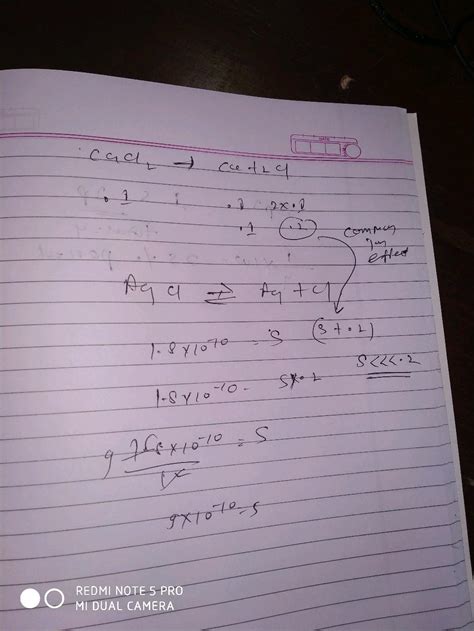 CaCl2 → Ca + 2Cl
.1 .1 2x.1
.1 .2
common
ion
effect
AgCl ⇌ Ag + Cl
1.8x10^-10 = S (S + .2)
S<<<.2
1.8x10^-10 = Sx.2
x10^-10 = S
9x10^-10 = S
REDMI NOTE 5 PRO
MI DUAL CAMERA